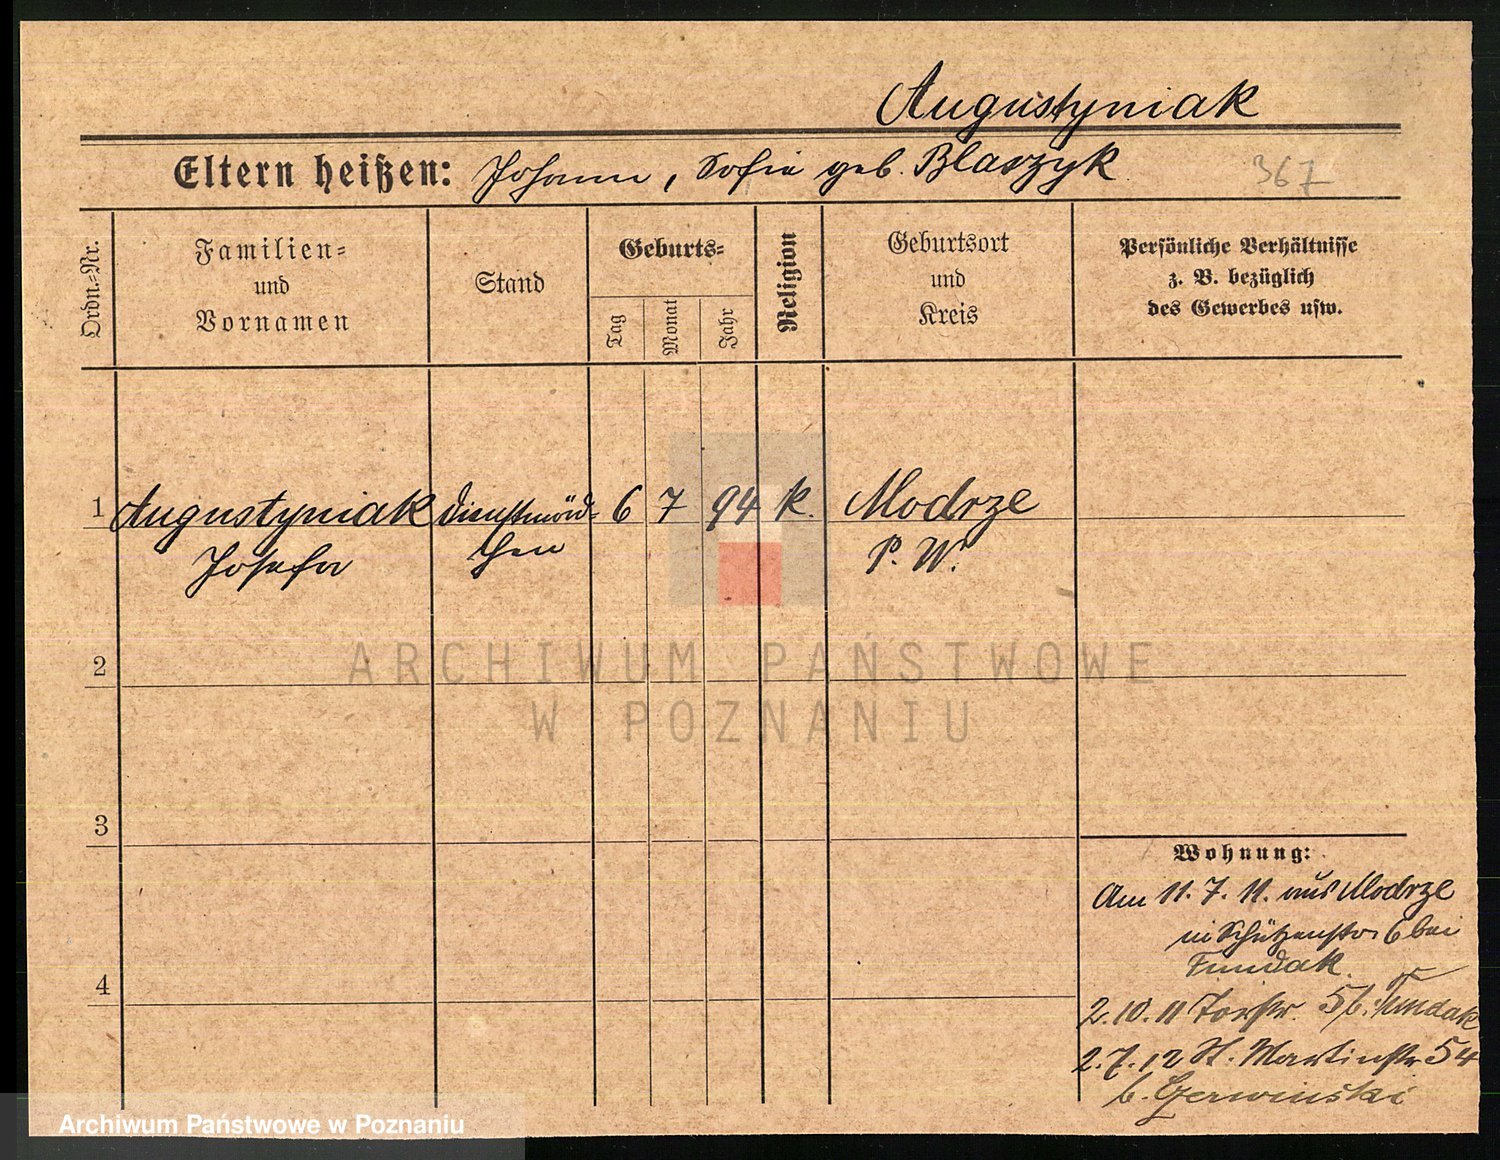 Augustyniak
Eltern heißen: Johann, Sofie geb. Blaszyk
367
Ordn.-Nr.
Familien-
und
Vornamen
Stand
Geburts-
Tag
Monat
Jahr
Religion
Geburtsort
und
Kreis
Persönliche Verhältnisse
z. B. bezüglich
des Gewerbes usw.
1 Augustyniak Dienstmäd- 6 7 94 k. Modrze
Josefa chen P. W.
2
ARCHIWUM PAŃSTWOWE
W POZNANIU
3
Wohnung:
Am 11. 7. 11. aus Modrze
in Schützenstr 6 bei
Fundak.
4
2. 10. 11 Torstr. 5 b. Fundak
2. 7. 12 St. Martinstr 54
b. Gerwinski
Archiwum Państwowe w Poznaniu